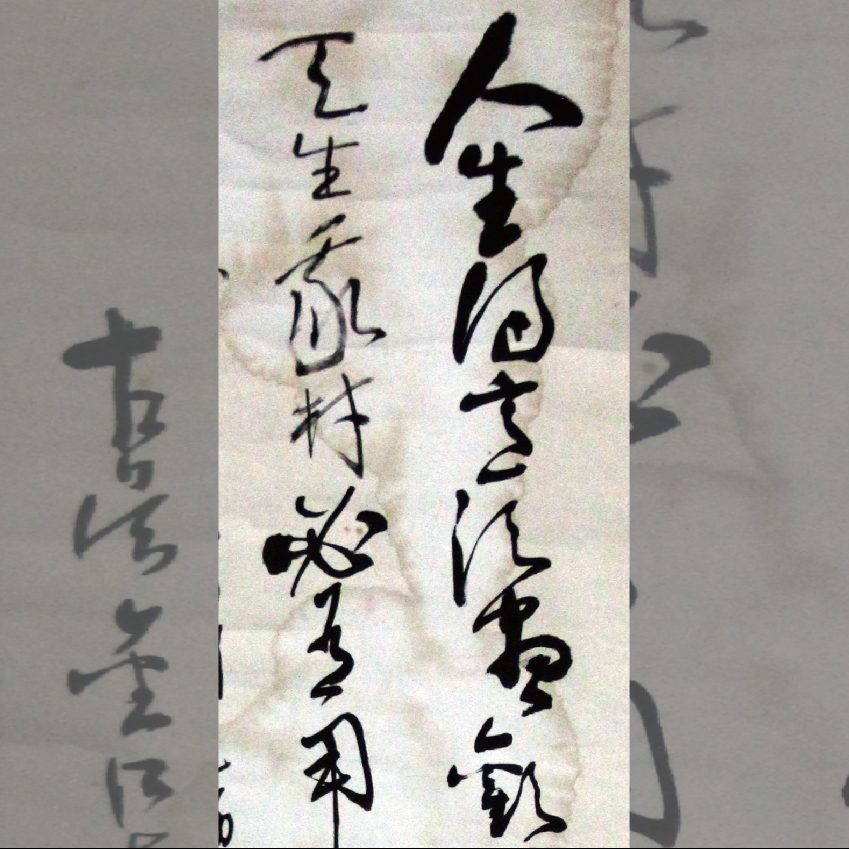 人生得意須盡歡
天生我材必有用